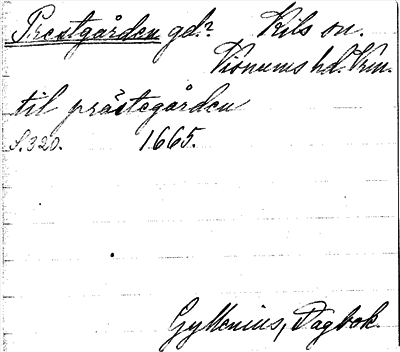 Prestgården gd? Kils sn.
Visnums hd. Vrm.
til prästegården
s. 320. 1665.
Gyllenius, Dagbok.